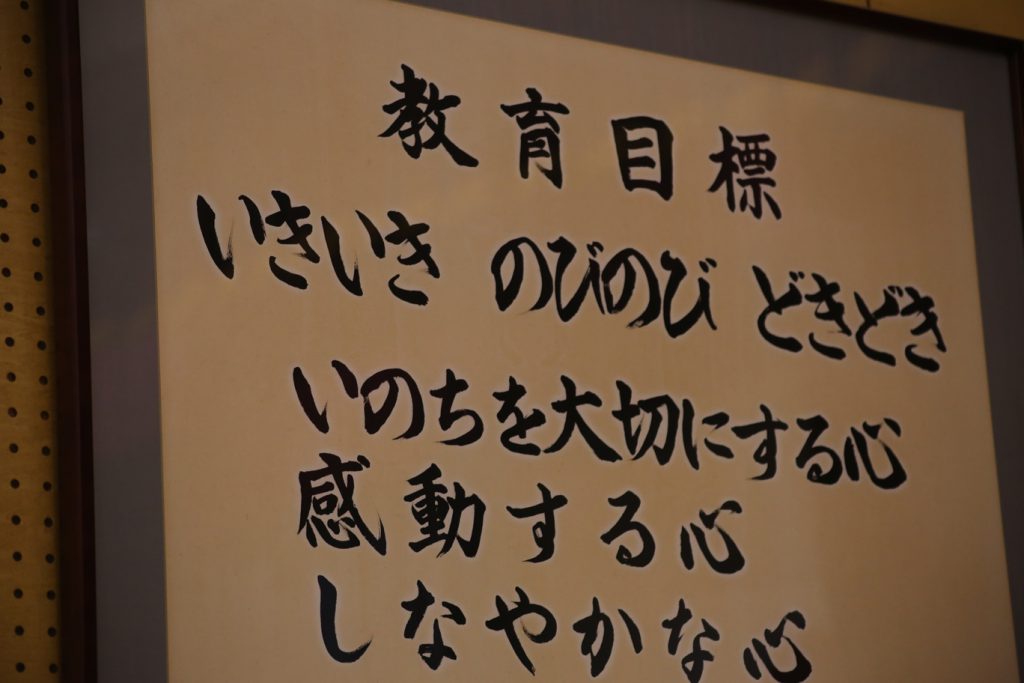 教育目標
いきいき のびのび どきどき
いのちを大切にする心
感動する心
しなやかな心